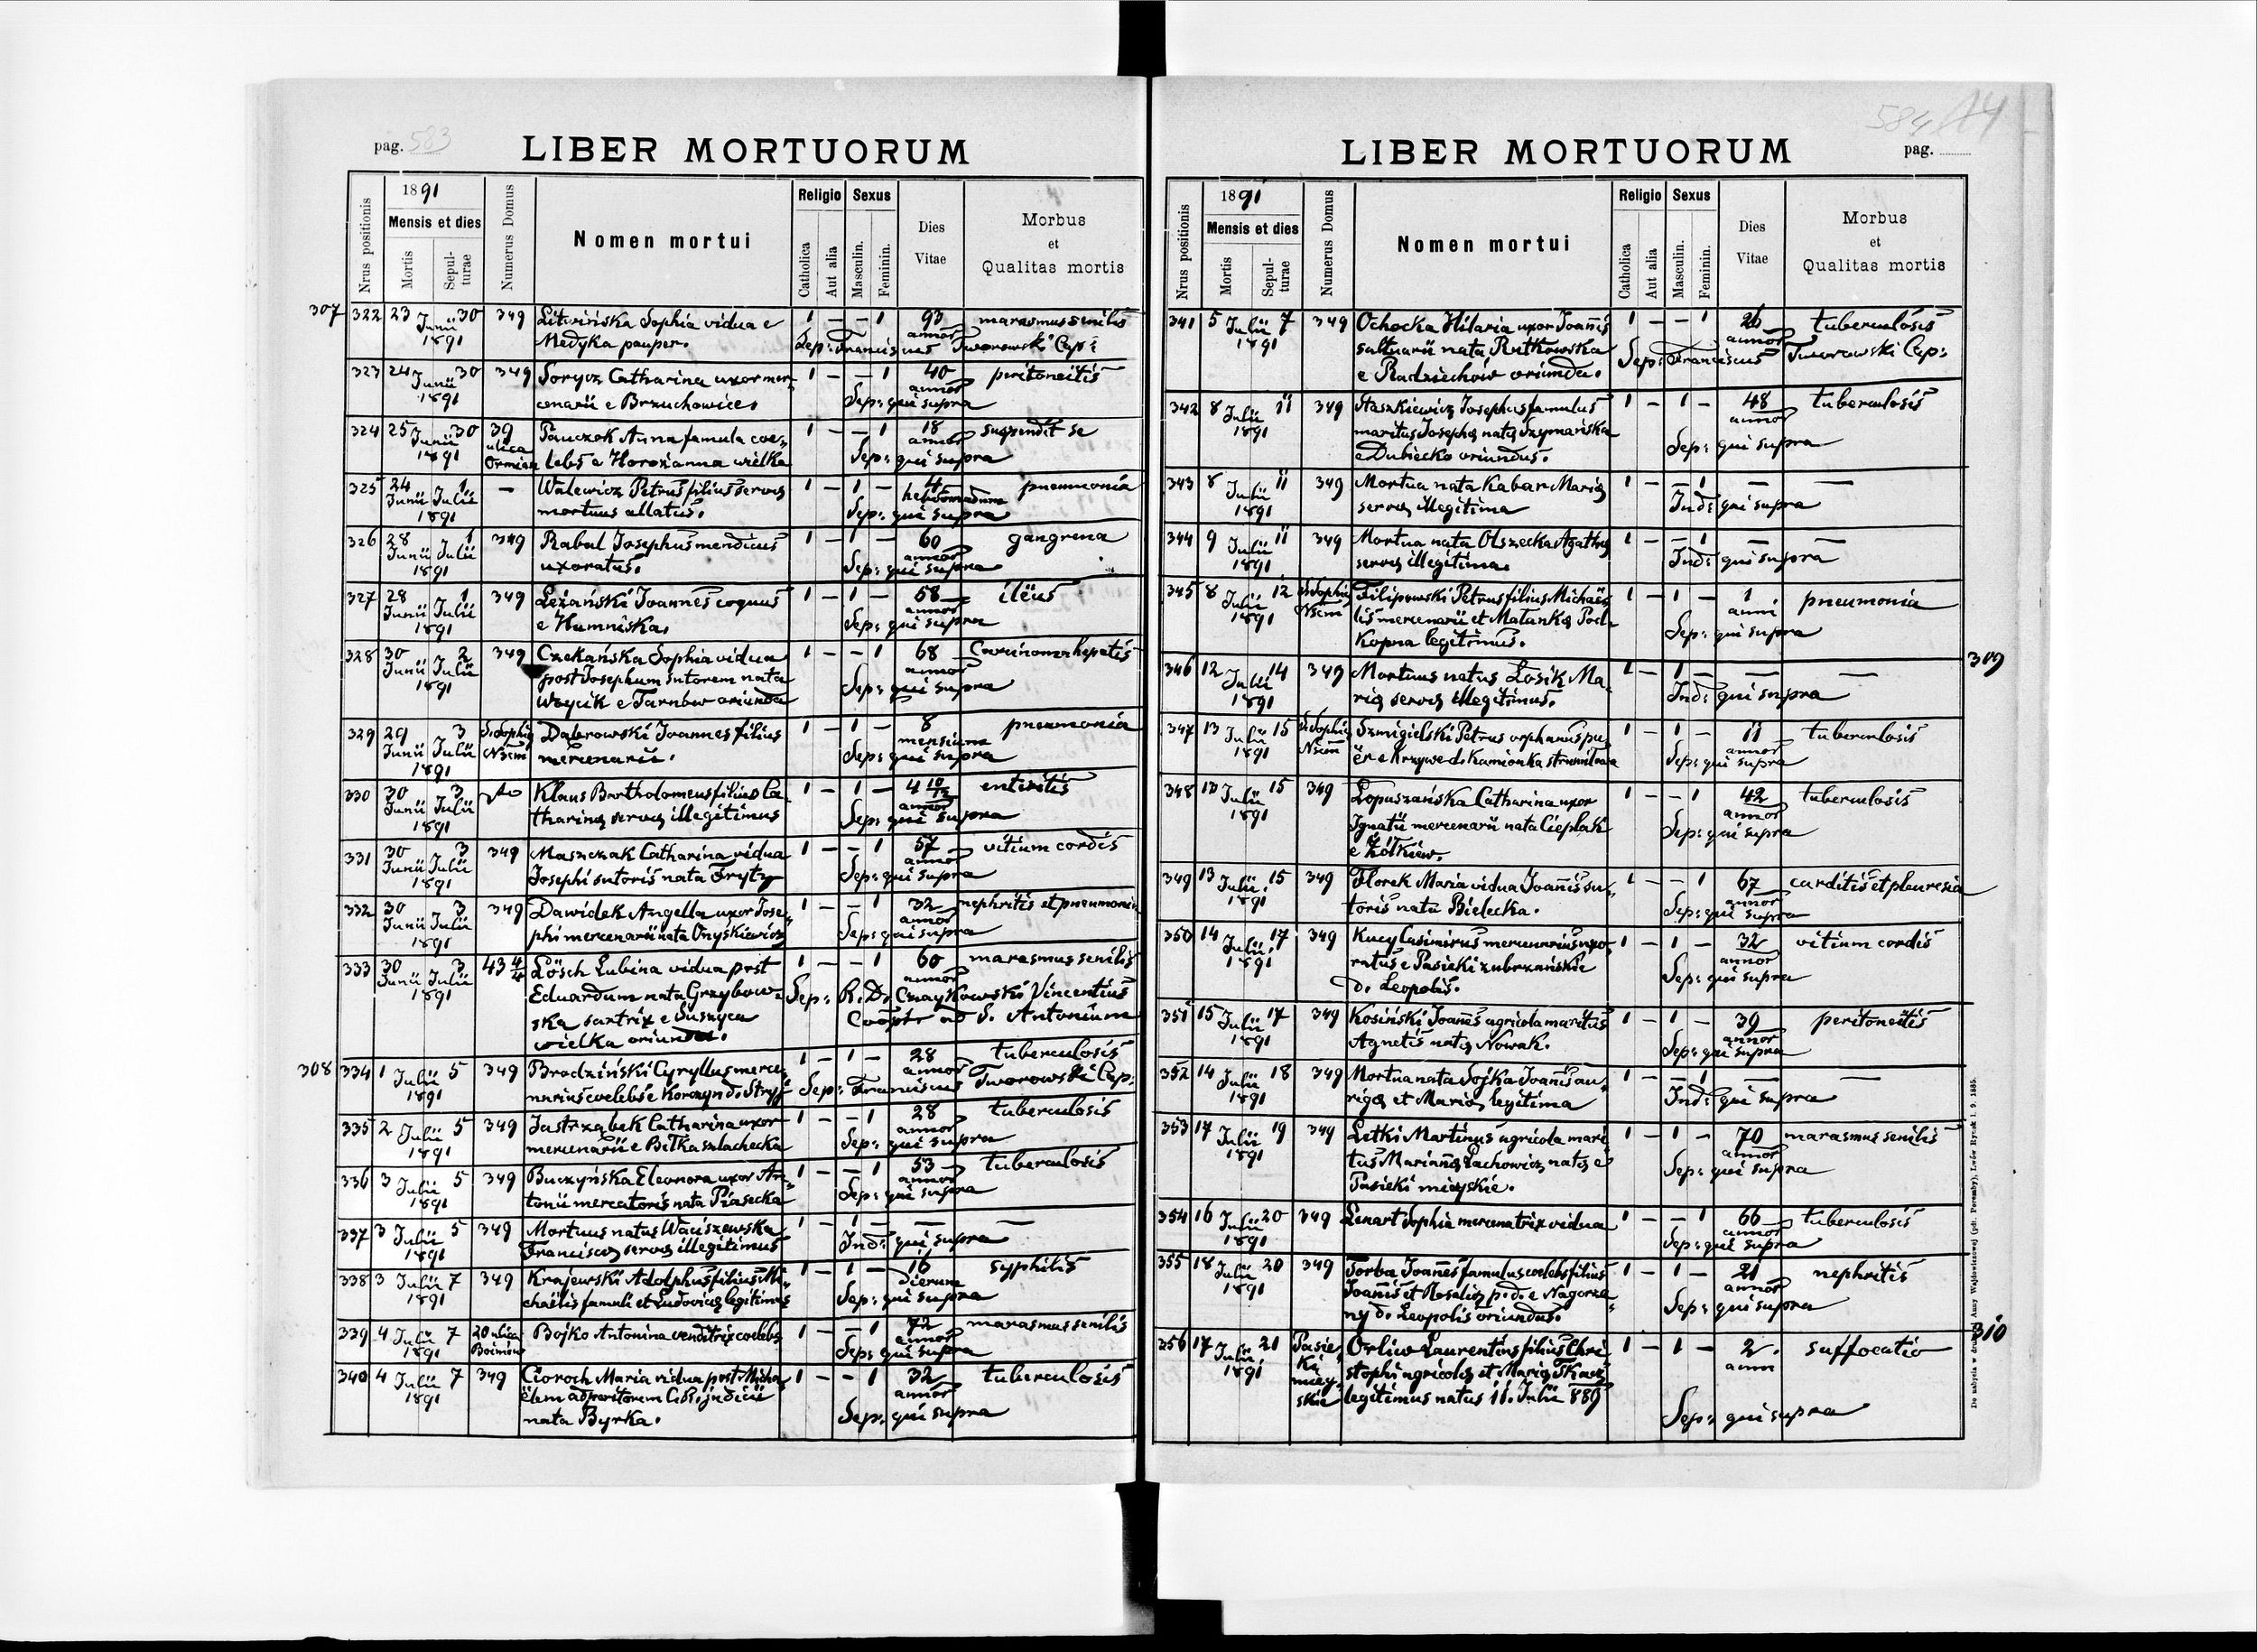 pag. 583
LIBER MORTUORUM
Nrus positionis
1891
Mensis et dies
Mortis
Sepulturae
Numerus Domus
Nomen mortui
Religio
Catholica
Aut alia
Sexus
Masculin.
Feminin.
Dies Vitae
Morbus et Qualitas mortis
307 322 23 Junii 30 1891 349 Litwińska Sophia vidua e 1 – – 1 93 annor marasmus senilis
Medyka pauper. Sep: Franciscus Tworowski Cap:
323 24 Junii 30 1891 349 Sorycz Catharina uxor mer- 1 – – 1 40 annor peritoneitis
cenarii e Brzuchowice. Sep: qui supra
324 25 Junii 30 1891 39 ulica Ormian Pauczek Anna famula coe- 1 – – 1 18 annor suspendit se
lebs e Horożanna wielka Sep: qui supra
325 24 Junii 1 Julii 1891 – Walewicz Petrus filius servae 1 – 1 – 4 hebdomadum pneumonia
mortuus allatus. Sep: qui supra
326 28 Junii 1 Julii 1891 349 Rabul Josephus mendicus 1 – 1 – 60 annor gangrena
uxoratus. Sep: qui supra
327 28 Junii 1 Julii 1891 349 Leżański Joannes coquus 1 – 1 – 58 annor ileus
e Humniska. Sep: qui supra
328 30 Junii 2 Julii 1891 349 Czekańska Sophia vidua 1 – – 1 68 annor Carcinoma hepatis
post Josephum sutorem nata
Woycik e Tarnow oriunda Sep: qui supra
329 29 Junii 3 Julii 1891 S. Sophia Dabrowski Joannes filius 1 – 1 – 8 mensium pneumonia
mercenarii. Sep: qui supra
330 30 Junii 3 Julii 1891 dto Klaus Bartholomeus filius Ca- 1 – 1 – 4 10/12 annor enteritis
tharinae servae illegitimus Sep: qui supra
331 30 Junii 3 Julii 1891 349 Maszczak Catharina vidua 1 – – 1 57 annor vitium cordis
Josephi sutoris nata Fryty Sep: qui supra
332 30 Junii 3 Julii 1891 349 Dawidek Angella uxor Jose- 1 – – 1 32 annor nephritis et pneumonia
phi mercenarii nata Onyśkiewicz Sep: qui supra
333 30 Junii 3 Julii 1891 43 4/4 Lösch Lubina vidua post 1 – – 1 60 annor marasmus senilis
Eduardum nata Grzybow- Sep: R. D. Czaykowski Vincentius
ska sartrix e Suszyca Cooptr ad S. Antonium
wielka oriunda.
308 334 1 Julii 5 1891 349 Brodziński Cyryllus merce- 1 – 1 – 28 annor tuberculosis
narius coelebs e Korczyn d. Stryj Sep: Franciscus Tworowski Cap:
335 2 Julii 5 1891 349 Jastrząbek Catharina uxor 1 – – 1 28 annor tuberculosis
mercenarii e Biłka szlachecka Sep: qui supra
336 3 Julii 5 1891 349 Buczyńska Eleonora uxor An- 1 – – 1 53 annor tuberculosis
tonii mercatoris nata Piasecka Sep: qui supra
337 3 Julii 5 1891 349 Mortuus natus Waciszewska 1 – 1 – – –
Franciscae servae illegitimus Ind: qui supra
338 3 Julii 7 1891 349 Krajewski Adolphus filius Mi- 1 – 1 – 16 dierum syphilis
chaëlis famuli et Ludovicae legitimus Sep: qui supra
339 4 Julii 7 1891 20 ulica Boimów Bojko Antonina venditrix coelebs 1 – – 1 72 annor marasmus senilis
Sep: qui supra
340 4 Julii 7 1891 349 Cioroch Maria vidua post Micha- 1 – – 1 32 annor tuberculosis
ëlem adparitorem C.R. judicii
nata Byrka. Sep: qui supra
584 14
LIBER MORTUORUM
pag.
Nrus positionis
1891
Mensis et dies
Mortis
Sepulturae
Numerus Domus
Nomen mortui
Religio
Catholica
Aut alia
Sexus
Masculin.
Feminin.
Dies Vitae
Morbus et Qualitas mortis
341 5 Julii 7 1891 349 Ochocka Hilaria uxor Joannis 1 – – 1 26 annor tuberculosis
saltuarii nata Rutkowska Sep: Franciscus Tworowski Cap:
e Radziechów oriunda.
342 8 Julii 11 1891 349 Staszkiewicz Josephus famulus 1 – 1 – 48 annor tuberculosis
maritus Josephae natae Szymańska
e Dubiecko oriundus. Sep: qui supra
343 8 Julii 11 1891 349 Mortua nata Kabar Mariae 1 – – 1 – –
servae illegitima Ind: qui supra
344 9 Julii 11 1891 349 Mortua nata Olszecka Agathae 1 – – 1 – –
servae illegitima. Ind: qui supra
345 8 Julii 12 1891 S. Sophia Filipowski Petrus filius Michaë- 1 – 1 – 1 anni pneumonia
lis mercenarii et Matankae Pod-
kopna legitimus. Sep: qui supra
346 12 Julii 14 1891 349 Mortuus natus Łosik Ma- 1 – 1 – – – 309
riae servae illegitimus. Ind: qui supra
347 13 Julii 15 1891 S. Sophia Szmigielski Petrus orphanus pu- 1 – 1 – 11 annor tuberculosis
er e Krzywe d. Kamionka strumiłowa Sep: qui supra
348 13 Julii 15 1891 349 Łopuszańska Catharina uxor 1 – – 1 42 annor tuberculosis
Ignatii mercenarii nata Cieplak Sep: qui supra
e Żółkiew.
349 13 Julii 15 1891 349 Florek Maria vidua Joannis su- 1 – – 1 67 annor carditis et pleuresia
toris nata Bielecka. Sep: qui supra
350 14 Julii 17 1891 349 Kucy Casimirus mercenarius uxo- 1 – 1 – 32 annor vitium cordis
ratus e Pasieki zubrzańskie Sep: qui supra
d. Leopolis.
351 15 Julii 17 1891 349 Kosiński Joannes agricola maritus 1 – 1 – 39 annor peritoneitis
Agnetis natae Nowak. Sep: qui supra
352 14 Julii 18 1891 349 Mortua nata Sojka Joannis au- 1 – – 1 – –
rigae et Mariae legitima Ind: qui supra
353 17 Julii 19 1891 349 Letki Martinus agricola mari- 1 – 1 – 70 annor marasmus senilis
tus Mariannae Lachowicz natae e Sep: qui supra
Pasieki mieyskie.
354 16 Julii 20 1891 349 Lenart Sophia mercenatrix vidua 1 – – 1 66 annor tuberculosis
Sep: qui supra
355 18 Julii 20 1891 349 Torba Joannes famulus coelebs filius 1 – 1 – 21 annor nephritis
Joannis et Rosaliae p. d. e Nagorza- Sep: qui supra
ny d. Leopolis oriundus.
356 17 Julii 21 1891 Pasieki mieyskie Orliw Laurentius filius Chri- 1 – 1 – 2 anni suffocatio 310
stophi agricolae et Mariae Tkacz
legitimus natus 11. Julii 889 Sep: qui supra
Do nabycia w drukarni Anny Wajdowiczowej (pdt. Poremby), Lwów Rynek l. 9. 1885.